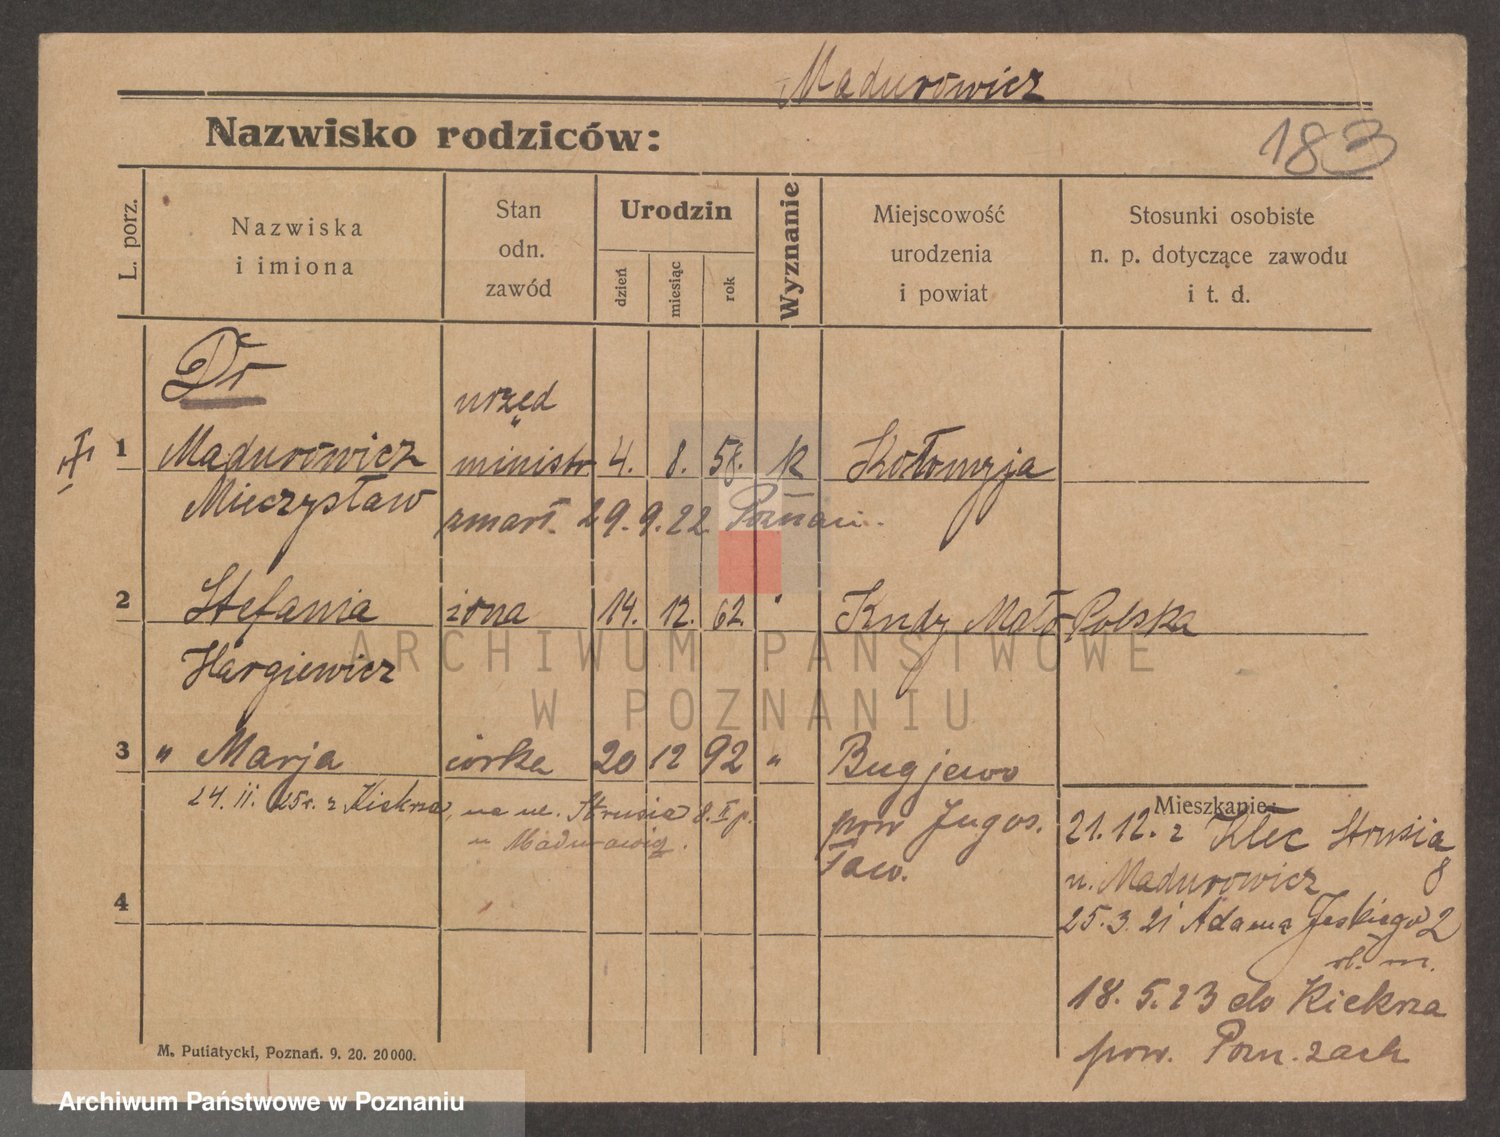 Madurowicz
Nazwisko rodziców:
183
L. porz.
Nazwiska
i imiona
Stan
odn.
zawód
Urodzin
dzień
miesiąc
rok
Wyznanie
Miejscowość
urodzenia
i powiat
Stosunki osobiste
n. p. dotyczące zawodu
i t. d.
Dr
urzęd
1 Madurowicz ministr 4. 8. 58. k Kołomyja
Mieczysław zmarł 29. 9. 22 Poznań.
2 Stefania żona 14. 12. 62 " Małopolska
Hargiewicz
3 " Marja córka 20 12 92 " Bugjewo
24. 11. 25 r. z Kiekrza, na ul. Strusia 8. II p.
u Madurowicz.
pow Jugos.
ław.
4
Mieszkanie:
21. 12. z Strusia
8
u. Madurowicz
25. 3. 21 Adama 2
18. 5. 23 do Kiekrza
pow. Pozn. zach
M. Putiatycki, Poznań. 9. 20. 20000.
ARCHIWUM PAŃSTWOWE
W POZNANIU
Archiwum Państwowe w Poznaniu